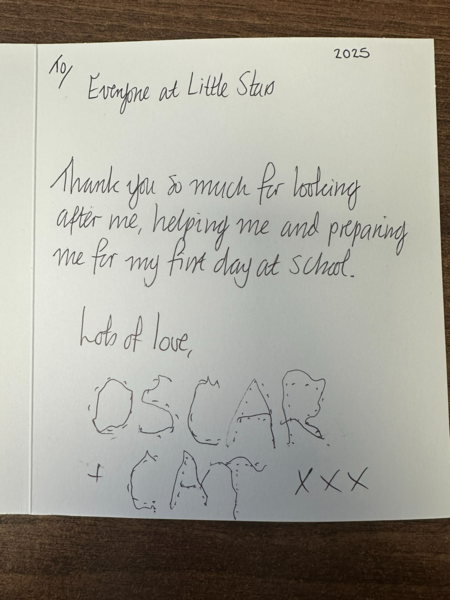 2025
To/
Everyone at Little Stars
Thank you so much for looking
after me, helping me and preparing
me for my first day at school.
Lots of love,
OSCAR
+ CAT XXX